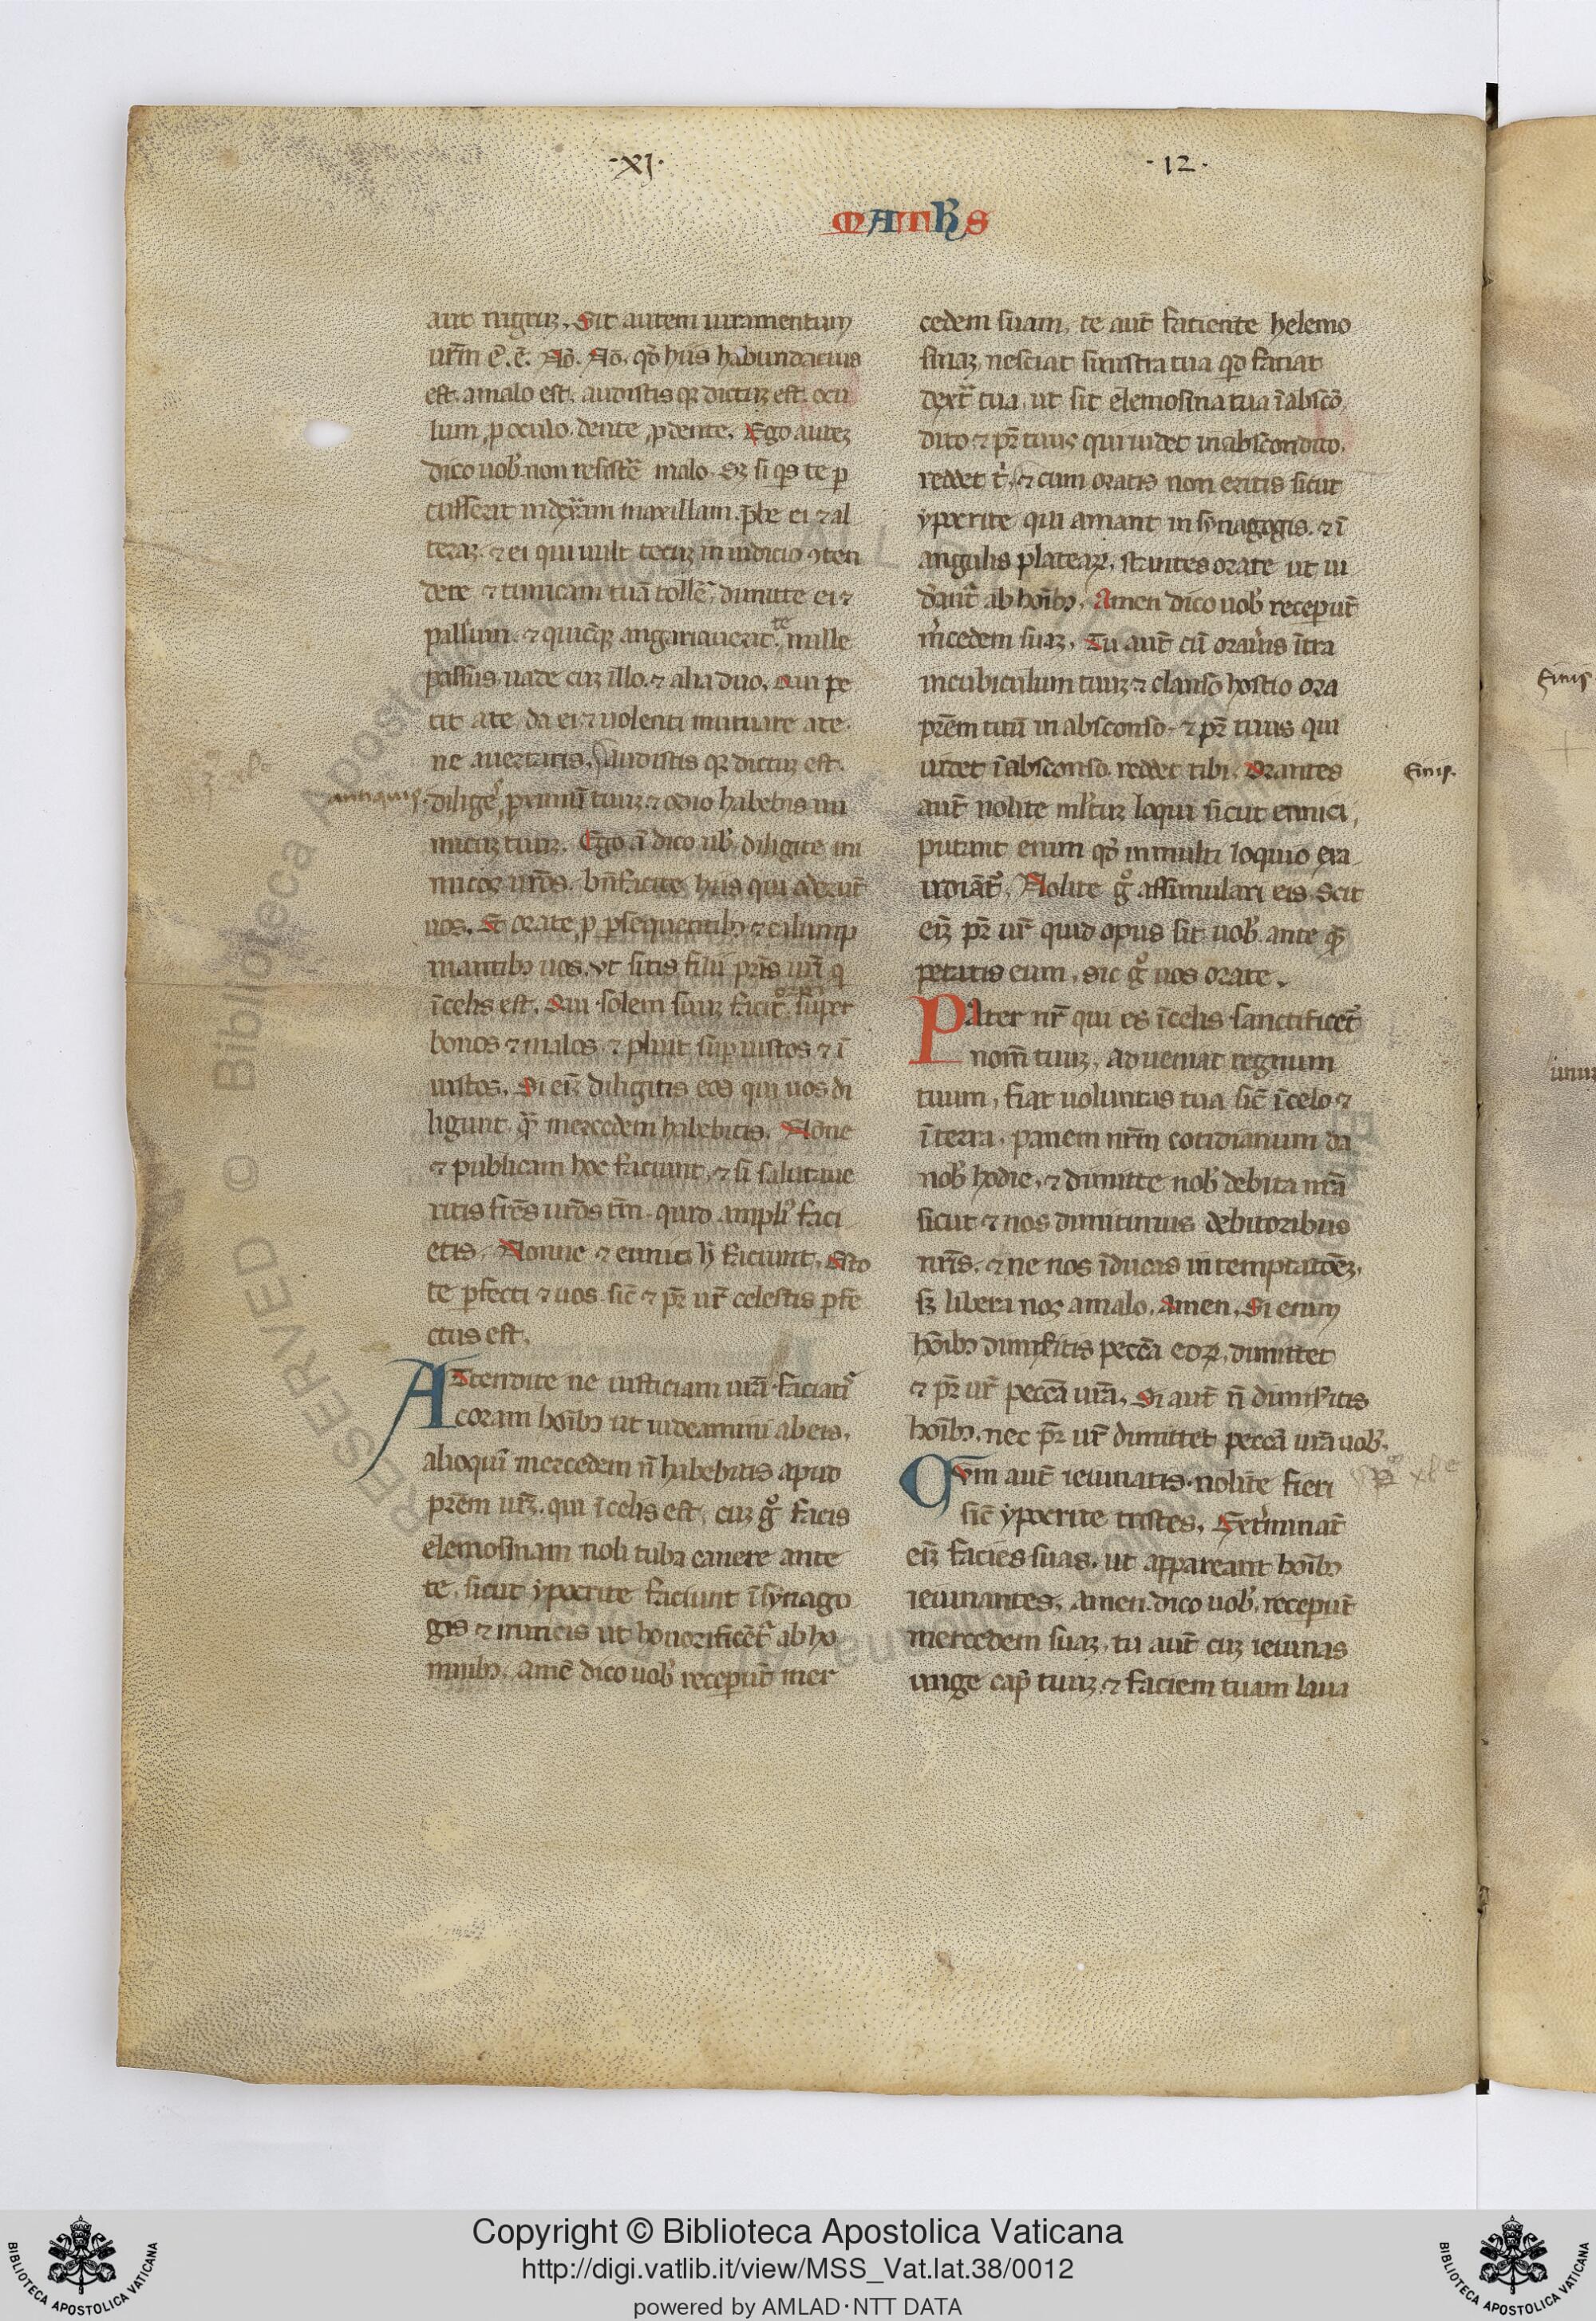 ·xj·
·12·
MATHS
aut nigruꝫ. Sit autem iuramentum
ur̄m ē. ē. Nō. Nō. qd̄ hiis habundacius
est. amalo est. audistis qꝛ dictuꝫ est. ocu
lum p oculo. dente p dente. Ego auteꝫ
dico uob̓. non resistē malo. Sꝫ si qͥs te ꝑ
cusserit in dext̾am maxillam. p̄be ei ⁊ al
teraꝫ. ⁊ ei qui uult tecuꝫ in iudicio ꝯten
dere ⁊ tunicam tuā tollē. dimitte ei ⁊
pallium. ⁊ quicūqꝫ angariauerit te mille
passus. uade cuꝫ illo. ⁊ alia duo. Qui pe
tit ate da ei ⁊ uolenti mutuare ate.
ne auertaris. Audistis qꝛ dictuꝫ est.
antiquis.
diligē̓ proximū tuuꝫ. ⁊ odio habebis ini
micuꝫ tuuꝫ. Ego ā dico uob̓. diligite ini
micos ur̄os. bn̄facite hiis qui oderūt
uos. Et orate p ꝑsequentibꝫ ⁊ calump
niantibꝫ uos. vt sitis filii pr̄is ur̄i q̇
ī celis est. Qui solem suuꝫ facit oriri super
bonos ⁊ malos. ⁊ pluit suꝑ iustos ⁊ ī
iustos. Si eīꝫ diligitis eos qui uos di
ligunt. qͣm mercedem habebitis. Nōne
⁊ publicani hoc faciunt. ⁊ si salutaue
ritis fr̄es ur̄os tm̄. quid ampli̾ faci
etis. Nonne ⁊ etnici h̄ faciunt. Esto
te ꝑfecti ⁊ uos. sic̄ ⁊ pr̄ ur̄ celestis ꝑfe
ctus est.
ATtendite ne iusticiam ur̄ā faciatꝭ
coram hoı̄bꝫ ut uideamini ab eis.
alioquī mercedem n̄ habebitis apud
pr̄em ur̄ꝫ. qui ī celis est. cuꝫ gͦ facis
elemosinam noli tuba canere ante
te. sicut ypocrite faciunt ī synago
gis ⁊ in uicis ut honorificēt̾ ab ho
minibꝫ. Amē dico uob̓ receperūt mer
cedem suam. te aut̄ faciente helemo
sinaꝫ. nesciat sinistra tua qd̄ faciat
dext̾ tua. ut sit elemosina tua ī abscō
dito. ⁊ pr̄ tuus qui uidet in abscondito.
reddet t̾. ⁊ cum oratis non eritis sicut
ypocrite qui amant in synagogis. ⁊ ī
angulis plateaꝝ. stantes orate ut ui
deant̾ ab hoı̄bꝫ. Amen dico uob̓ receperūt
m̾cedem suaꝫ. Tu aut̄ cū orau̾is ītra
in cubiculum tuuꝫ. ⁊ clauso hostio ora
pr̄em tuū in absconso. ⁊ pr̄ tuus qui
uidet ī absconso. reddet tibi. Orantes
aut̄ nolite ml̾tuꝫ loqui sicut etnici.
putant enim qd̄ in multi loquio exa
udiāt̾. Nolite gͦ assimulari eis. Scit
eīꝫ pr̄ ur̄ quid opus sit uob̓. ante qͣ
petatis eum. sic gͦ uos orate.
PAter nr̄ qui es ī celis sanctificet̾
nom̄ tuuꝫ. adueniat regnum
tuum. fiat uoluntas tua sic̄ ī celo ⁊
ī terra. panem nr̄m cotidianum da
nob̓ hodie. ⁊ dimitte nob̓ debita nr̄a
sicut ⁊ nos dimitimus debitoribus
nr̄is. ⁊ ne nos īducas in temptatiōeꝫ.
sꝫ libera nos amalo. Amen. Si enim
hoı̄bꝫ dimisitis peccā eoꝝ. dimittet
⁊ pr̄ ur̄ peccā ur̄a. Si aut̄ n̄ dimisitis
hoı̄bꝫ. nec pr̄ ur̄ dimittet peccā ur̄a uob̓.
CVm aut̄ ieiunatis. nolite fieri
sic̄ ypocrite tristes. Exterminant
eīꝫ facies suas. ut appareant hoı̄bꝫ
ieiunantes. Amen dico uob̓. receperūt
mercedem suaꝫ. tu aut̄ cuꝫ ieiunas
unge cap̄ tuuꝫ. ⁊ faciem tuam laua
Copyright © Biblioteca Apostolica Vaticana
http://digi.vatlib.it/view/MSS_Vat.lat.38/0012
powered by AMLAD·NTT DATA
BIBLIOTECA APOSTOLICA VATICANA
BIBLIOTECA APOSTOLICA VATICANA